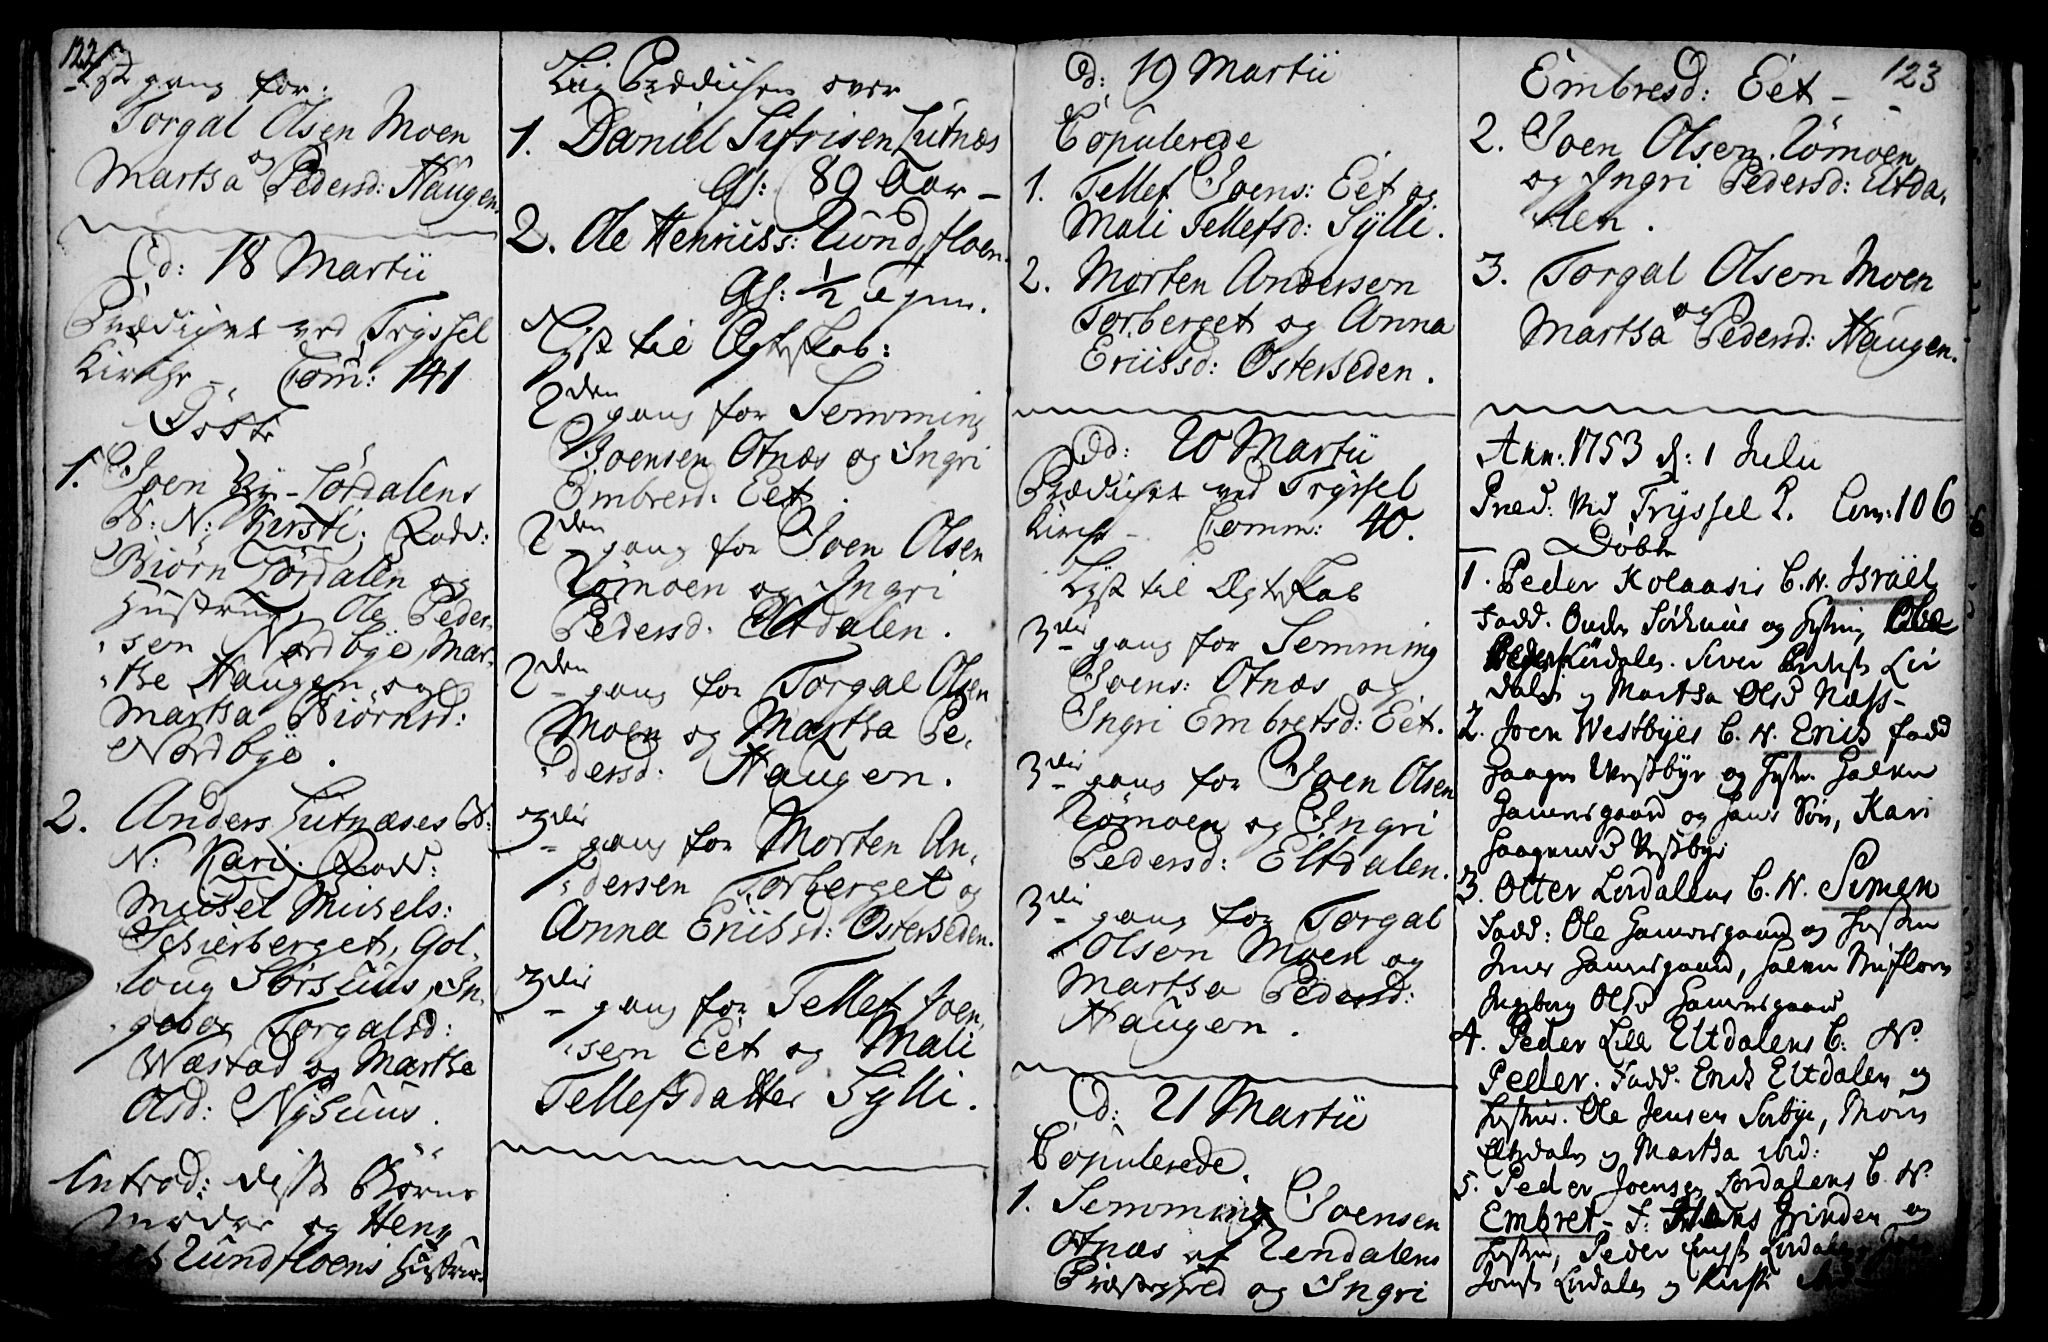 122
1st gang for.
Torgal Olsen Moen
og
Martha Pedersd: Haugen.
D: 18 Martii
Prædiket ved Tryssel
Kirche - Com: 141
Døbt
1. Joen Lørdalens
B: N: Kersti; Fadd:
Biørn Lørdalen og
Hustrue, Ole Peder-
sen Nordbye, Mar-
the Haugen og
Martha Biørnsd:
Nordbye.
2. Anders Lutnæses B:
N: Kari. Fadd:
Musel Musels:
Schierberget, Gol-
loug Sørhuus, In-
gebor Torgalsd:
Wæstad og Marthe
Olsd: Nyhuus.
Introd: disse Børns
Møder og Hen
Lundfloens Hustrue.
Liig Prædiken over
1. Daniel Sifrisen Lutnæs
Gl: 89 Aar -
2. Ole Henrikss: Lundfloen.
Gl: 1/2 Igun.
Lyst til Ægteskab:
2den gang for Semming
Joensen Otnæs og Ingri
Embresd: Eet.
2den gang for Joen Olsen
Lømoen og Ingri
Pedersd: Eltdalen.
2den gang for Torgal Olsen
Moen og Martha Pe-
dersd: Haugen.
3die gang for Morten An-
dersen Torberget og
Anna Eriksd: Østerheden.
3die gang for Tellef Joen-
sen Eet og Mali
Tellefsdatter Sylli.
D: 19 Martii
Copulerede
1. Tellef Joens: Eet og
Mali Tellefsd: Sylli.
2. Morten Andersen
Torberget og Anna
Erikssd: Østerheden.
D: 20 Martii
Prædiket ved Tryssel
Kirche - Comm: 40.
Lyst til Ægteskab
3die gang for Semming
Joens: Otnæs og
Ingri Embretsd: Eet.
3die gang for Joen Olsen
Lømoen og Ingri
Pedersd: Eltdalen.
3die gang for Torgal
Olsen Moen og
Martha Pedersd:
Haugen.
D: 21 Martii
Copulerede.
1. Semming Joensen
Otnæs af Rendalens
Præstegield og Ingri
123
Embresd: Eet -
2. Joen Olsen Lømoen
og Ingri Pedersd: Eltda-
len.
3. Torgal Olsen Moen
og
Martha Pedersd: Haugen.
Ann: 1753 d: 1 Julii
Præd: ved Tryssel K. Com: 106
Døbt
1. Peder Kolaasis B. N. Israel
Fadd. Sørhuus og Hustru
Lørdalen. Siver Lør
dalen og Martha Olsd Næss-
2. Joen Westbyes B. N. Erick Fadd
Haagen Westbye og Hustru Halvor
Galaasgaard og hans Søn, Kari
Haagensd Vestbye
3. Otter Lørdalens B. N. Simen
Fadd: Ole og Hustru
Ingeborg Olsd
4. Peder Lille Eltdalens B: N.
Peder. Fadd. Erick Eltdalen og
Hustru. Ole Jensen Sørbye,
Eltdalen og Martha ibid:
5. Peder Joensen Lørdalens B. N.
Embret - F: Grinden og
Hustru, Peder Lørdalen, Joen
Lørdalen og Kirsti